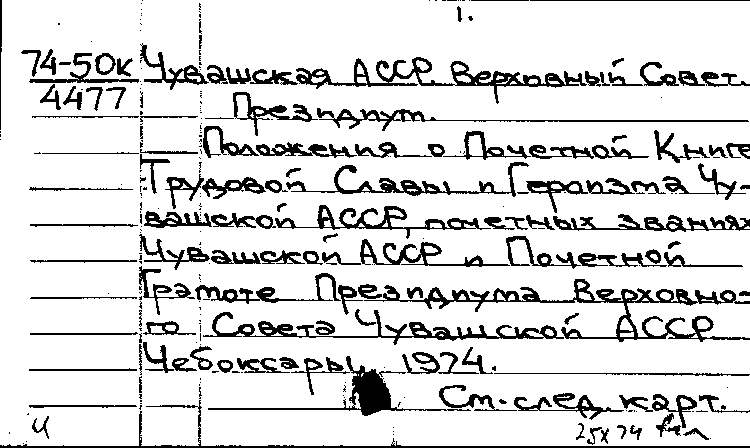 1.
74-50к Чувашская АССР. Верховный Совет.
4477 Президиум.
Положения о Почетной Книге
Трудовой Славы и Героизма Чу-
вашской АССР, почетных званиях
Чувашской АССР и Почетной
Грамоте Президиума Верховно-
го Совета Чувашской АССР
Чебоксары, 1974.
См. след. карт.
и 25x74